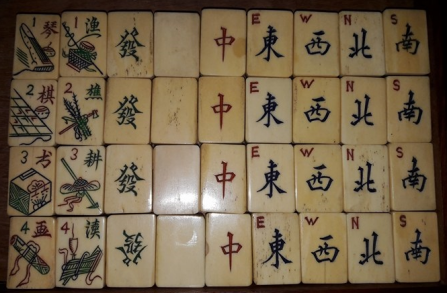 1 琴 1 漁 發 中 E 東 W 西 N 北 S 南
2 棋 2 樵 發 中 E 東 W 西 N 北 S 南
3 书 3 耕 發 中 E 東 W 西 N 北 S 南
4 画 4 發 中 E 東 W 西 N 北 S 南